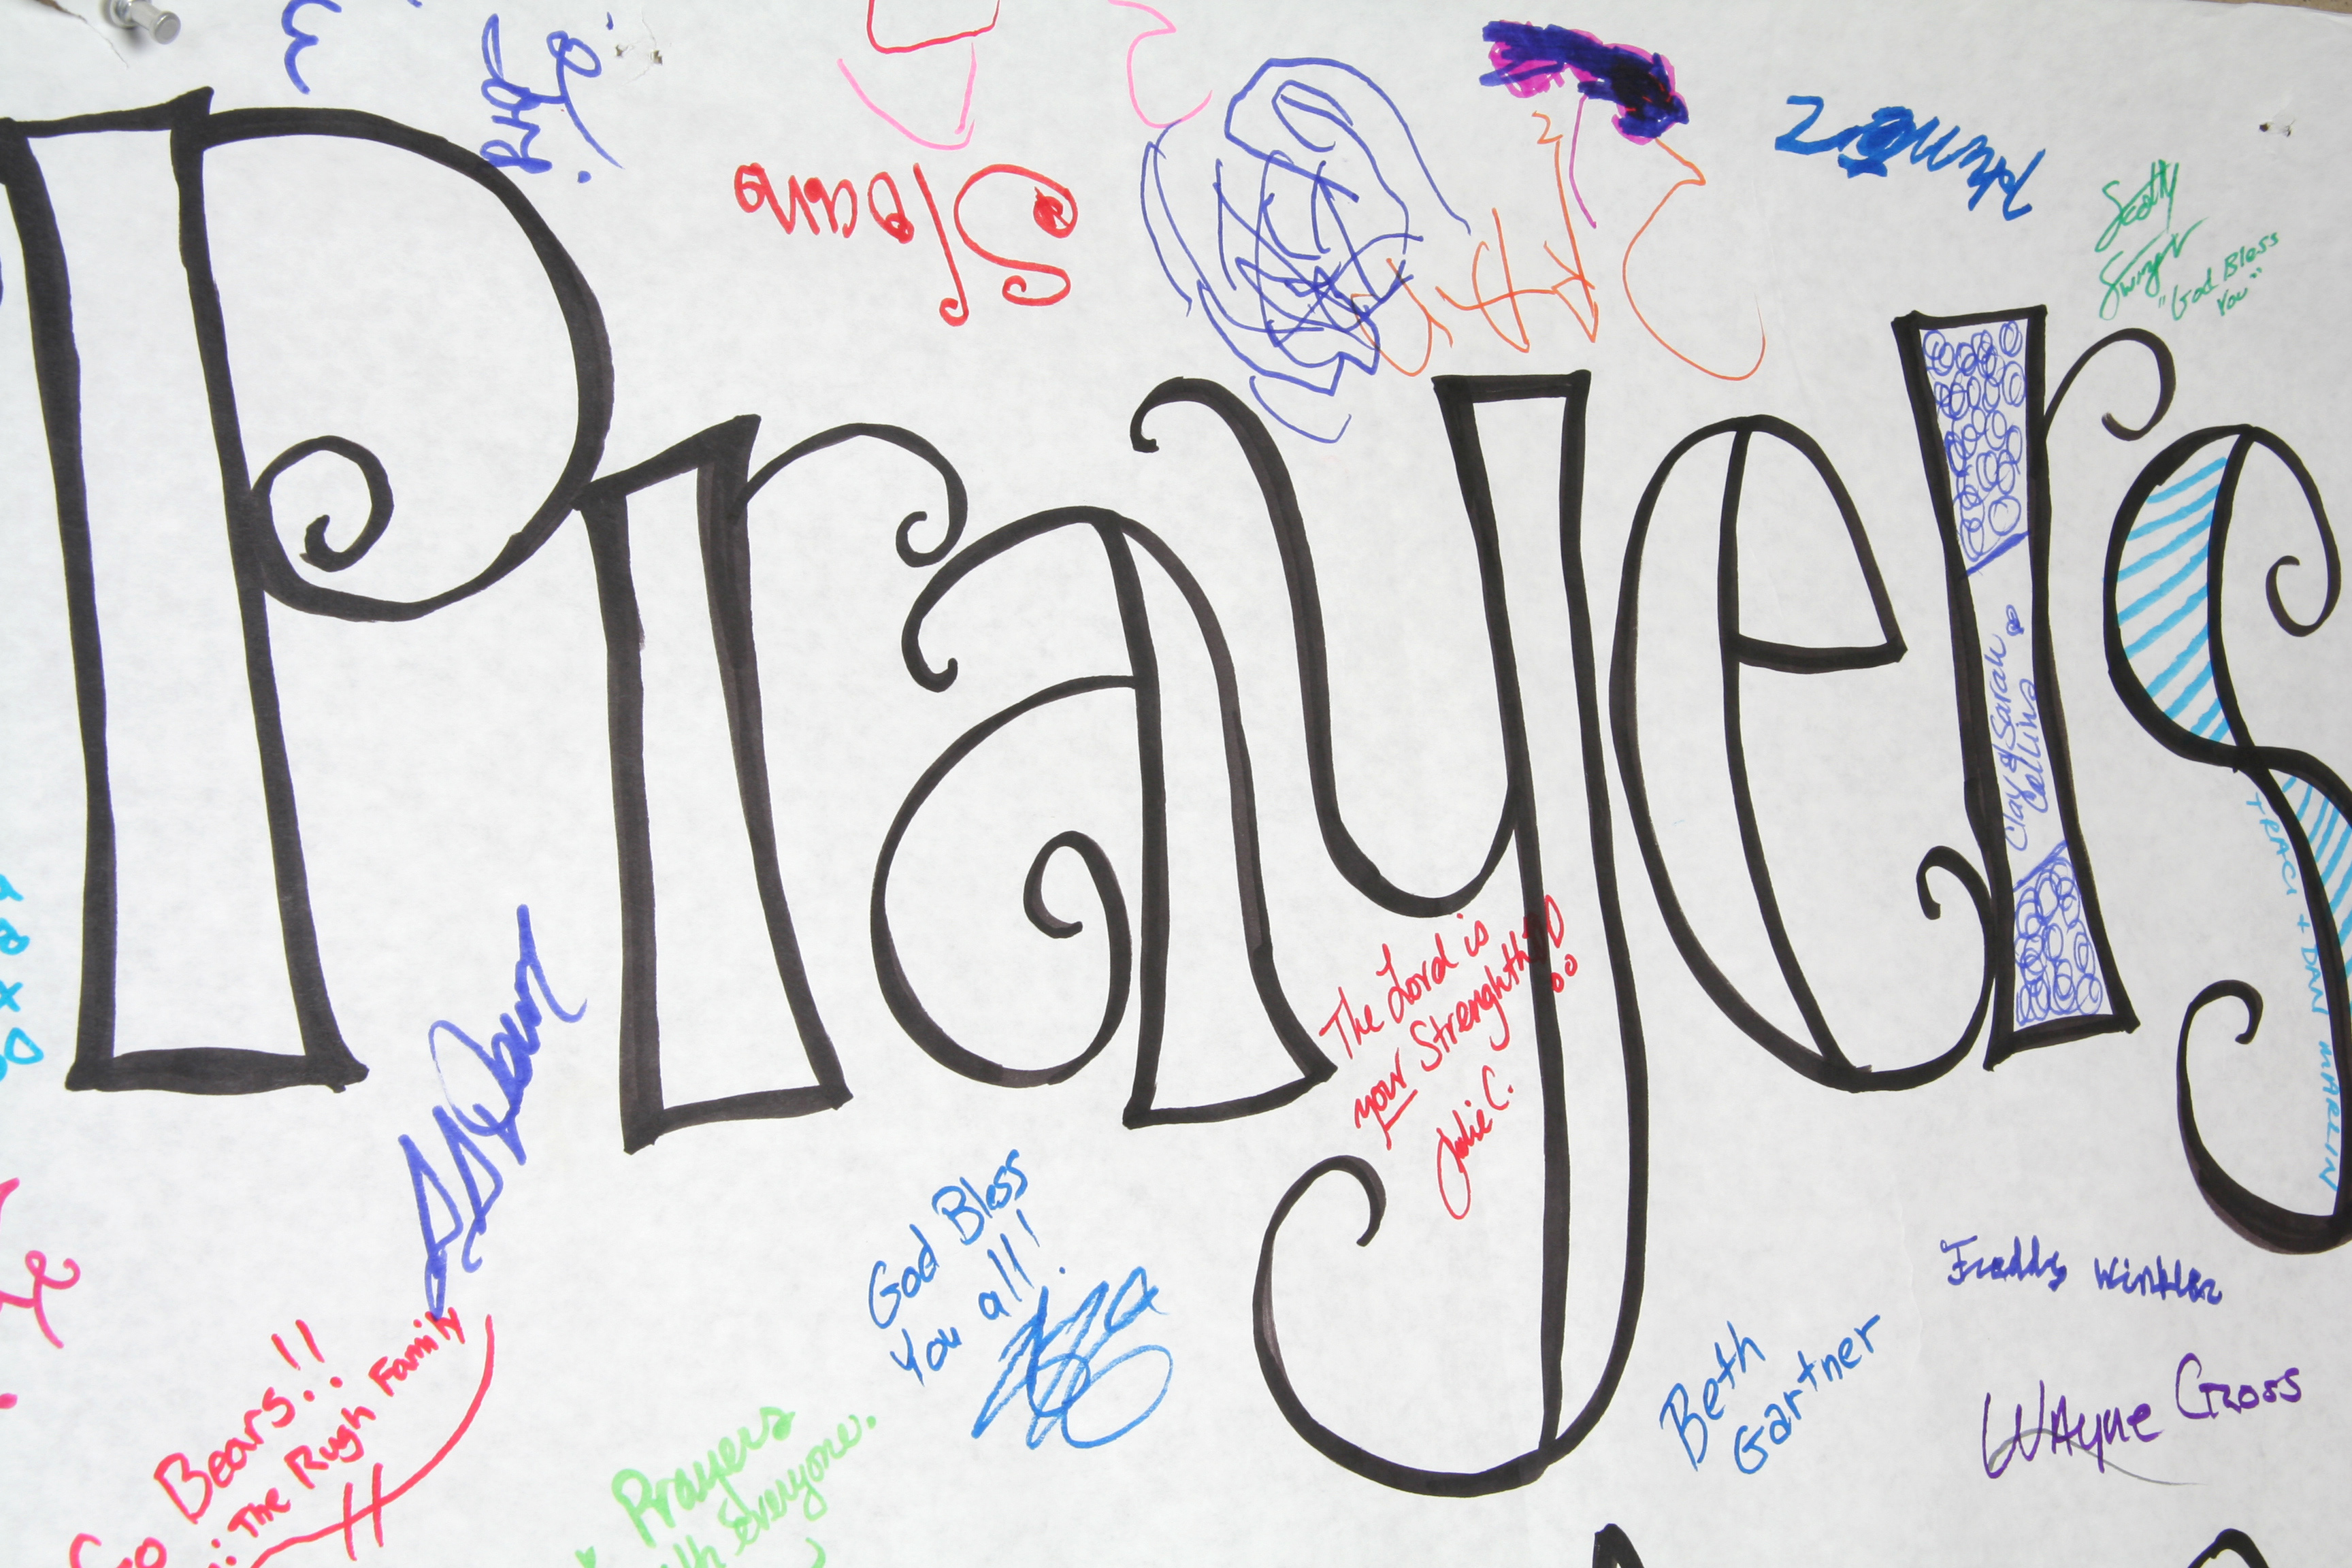 Scotty
Swinger
"God Bless
You"
Sloane
Prayers
Clay & Sarah
Collins
TRACI + DAN MARLIN
The Lord is
your Strenghth!!
Julie C.
God Bless
You all!
Freddy Winkler
Beth
Gartner
Wayne Gross
Go Bears!!
: The Rugh Family
Prayers
Everyone.